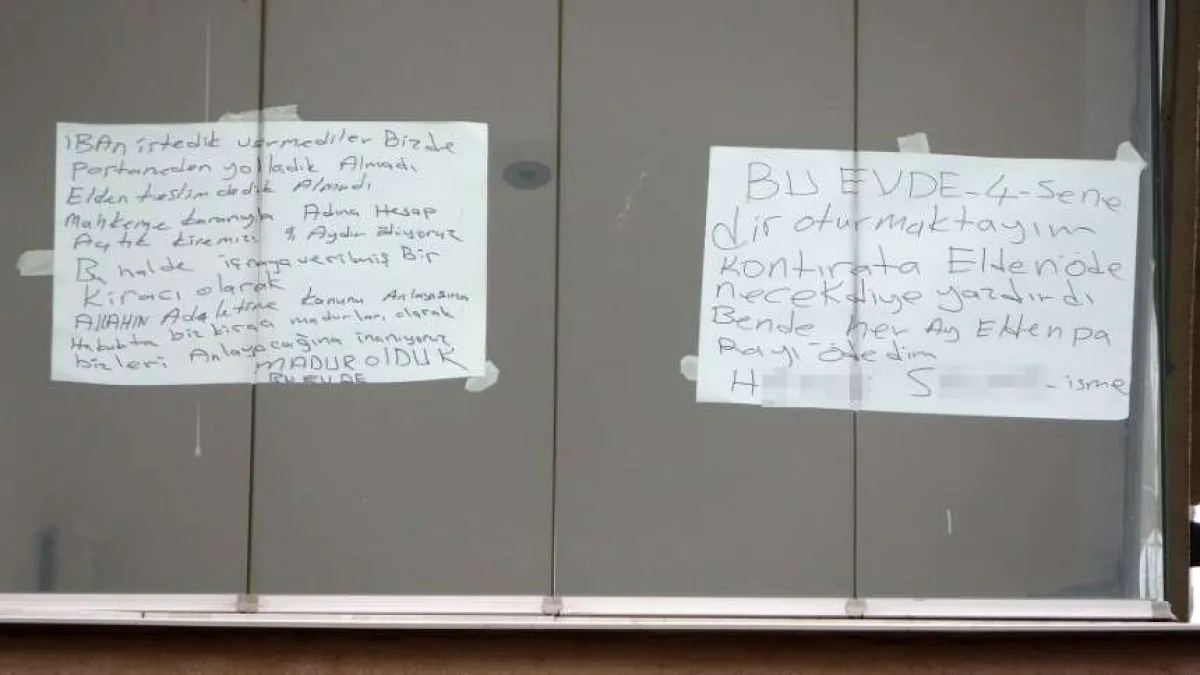 İBAn istedik vermediler Bizde
Postaneden yolladık Almadı
Elden teslim dedik Almadı
Mahkeme kararıyla Adına Hesap
Açtık kiremizi Aydır ödiyoruz
Bu halde içraya verilmiş Bir
Kiracı olarak
AllAHIN Adaletine kanunu Anlayışına
Hukukta biz kiracı madurları olarak
bizleri Anlayacağına inanıyoruz
MADUR OLDUK
BU EVDE
BU EVDE-4-Sene
dir oturmaktayım
Kontırata Elden öde
necekdiye yazdırdı
Bende her Ay Elden pa
Rayı ödedim
H S -isme